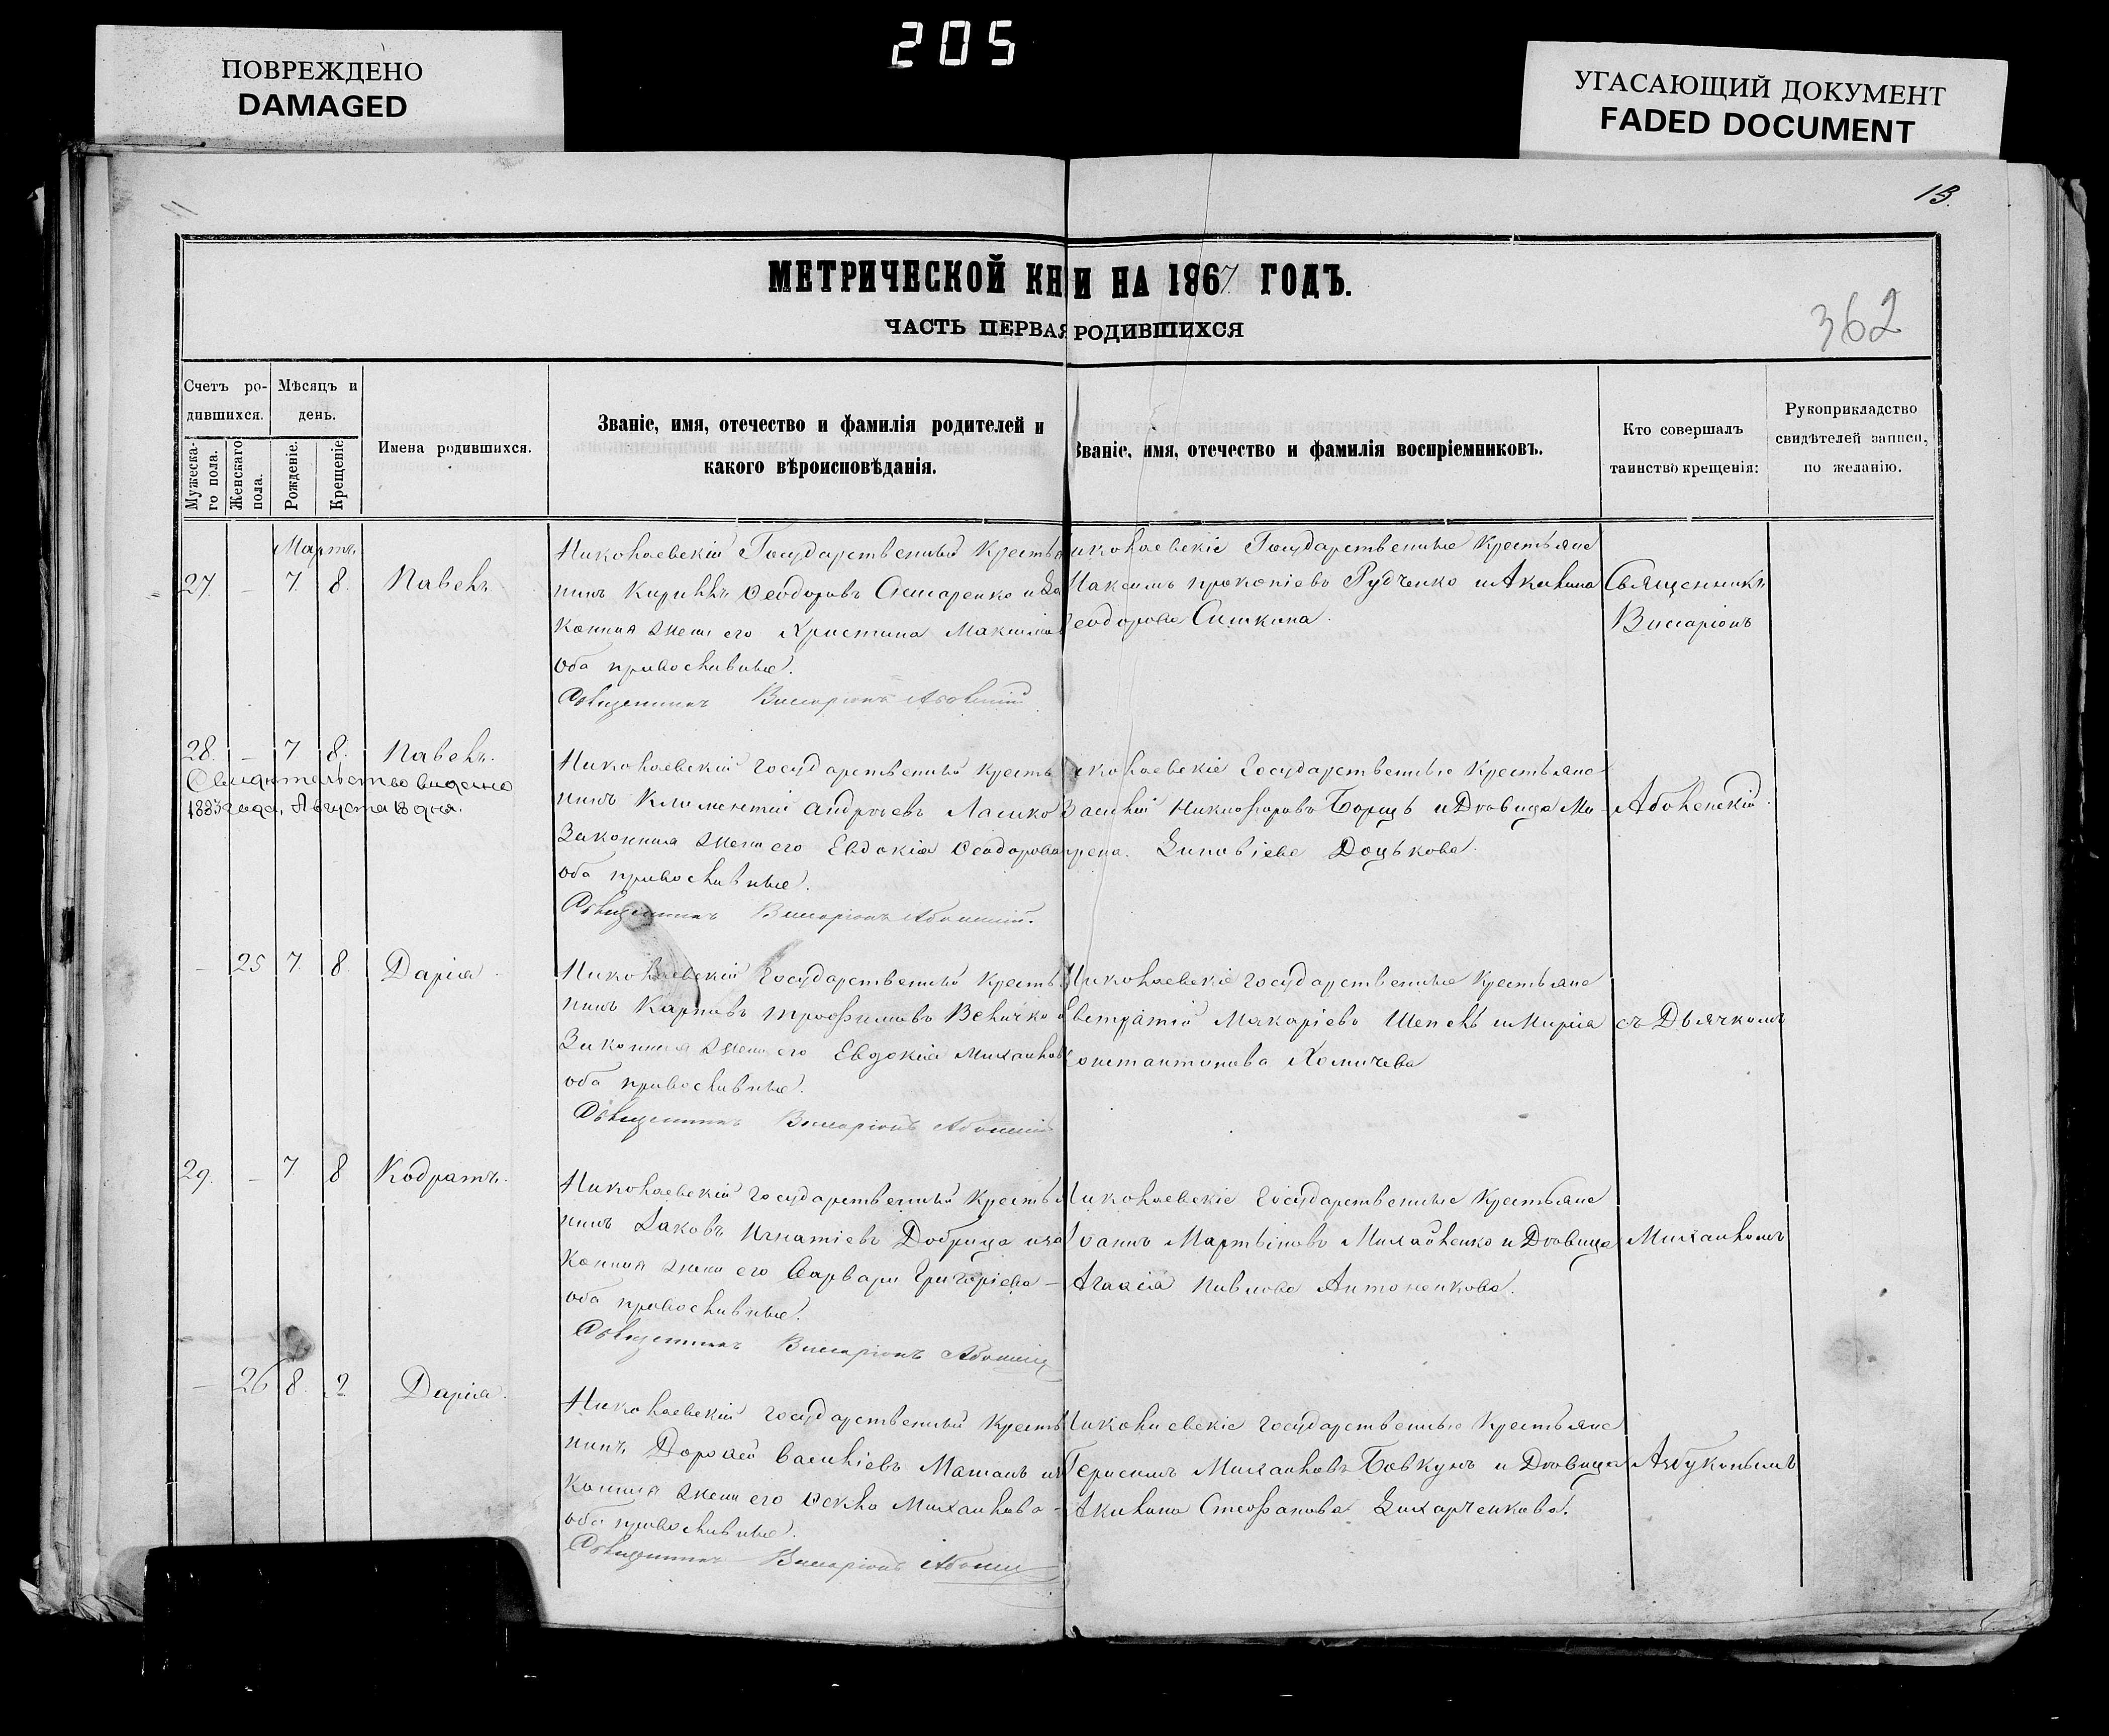 205
ПОВРЕЖДЕНО
DAMAGED
УГАСАЮЩИЙ ДОКУМЕНТ
FADED DOCUMENT
13.
МЕТРИЧЕСКОЙ КНИ НА 1867 ГОДЪ.
ЧАСТЬ ПЕРВАЯ РОДИВШИХСЯ
362
Счетъ ро-
дившихся.
Мѣсяцъ и
день.
Мужеска-
го пола.
Женскаго
пола.
Рожденіе.
Крещеніе.
Имена родившихся.
Званіе, имя, отечество и фамилія родителей и
какого вѣроисповѣданія.
Званіе, имя, отечество и фамилія воспріемниковъ.
Кто совершалъ
таинство крещенія:
Рукоприкладство
свидѣтелей записи,
по желанію.
Мартъ
27. – 7. 8. Павелъ
Николаевскій Государственный Крестья
нинъ Кириллъ Ѳеодоровъ и За
конная жена его Христина Максимов
оба православные.
Священникъ Виссаріонъ
Николаевскіе Государственные Крестьяне
Максимъ Прокопіевъ Рудченко и Акилина
Ѳеодорова
Священникъ
Виссаріонъ
28. – 7 8. Павелъ.
Свидѣтельство выдано
1883 года, Августа 18 дня.
Николаевскій государственный Кресть
нинъ Климентій Андреевъ Лашко
Законная жена его Евдокія Ѳеодорова
оба православные.
Священникъ Виссаріонъ
Николаевскіе Государственные Крестьяне
Василій Никифоровъ Борщъ и Дѣвица Ма-
Зиновіева Доцькова.
– 25 7. 8. Дарія.
Николаевскій Государственный Кресть
нинъ Карпъ Трофимовъ Величко
Законная жена его Евдокія Михайлов
оба православные.
Священникъ Виссаріонъ
Николаевскіе Государственные Крестьяне
Евстратій Макаріевъ Шепель и Марія
Константинова Хомичева
съ Дьячкомъ
29. – 7 8 Кодратъ.
Николаевскій Государственный Крестья
нинъ Іаковъ Игнатіевъ Добрица и за
конная жена его Варвара Григоріева –
оба православные.
Священникъ Виссаріонъ
Николаевскіе Государственные Крестьяне
Іоаннъ Мартыновъ Михайленко и Дѣвица
Агаѳія Павлова Антоненкова.
Михаиломъ
– 26 8. 9 Дарія.
Николаевскій государственный Кресть
нинъ Дороѳей Василіевъ Маташъ и за
конная жена его Ѳекла Михаилова –
оба православные.
Священникъ Виссаріонъ
Николаевскіе государственные Крестьяне
Герасимъ Михаиловъ Бовкунъ и Дѣвица
Акилина Стефанова Захарченкова.